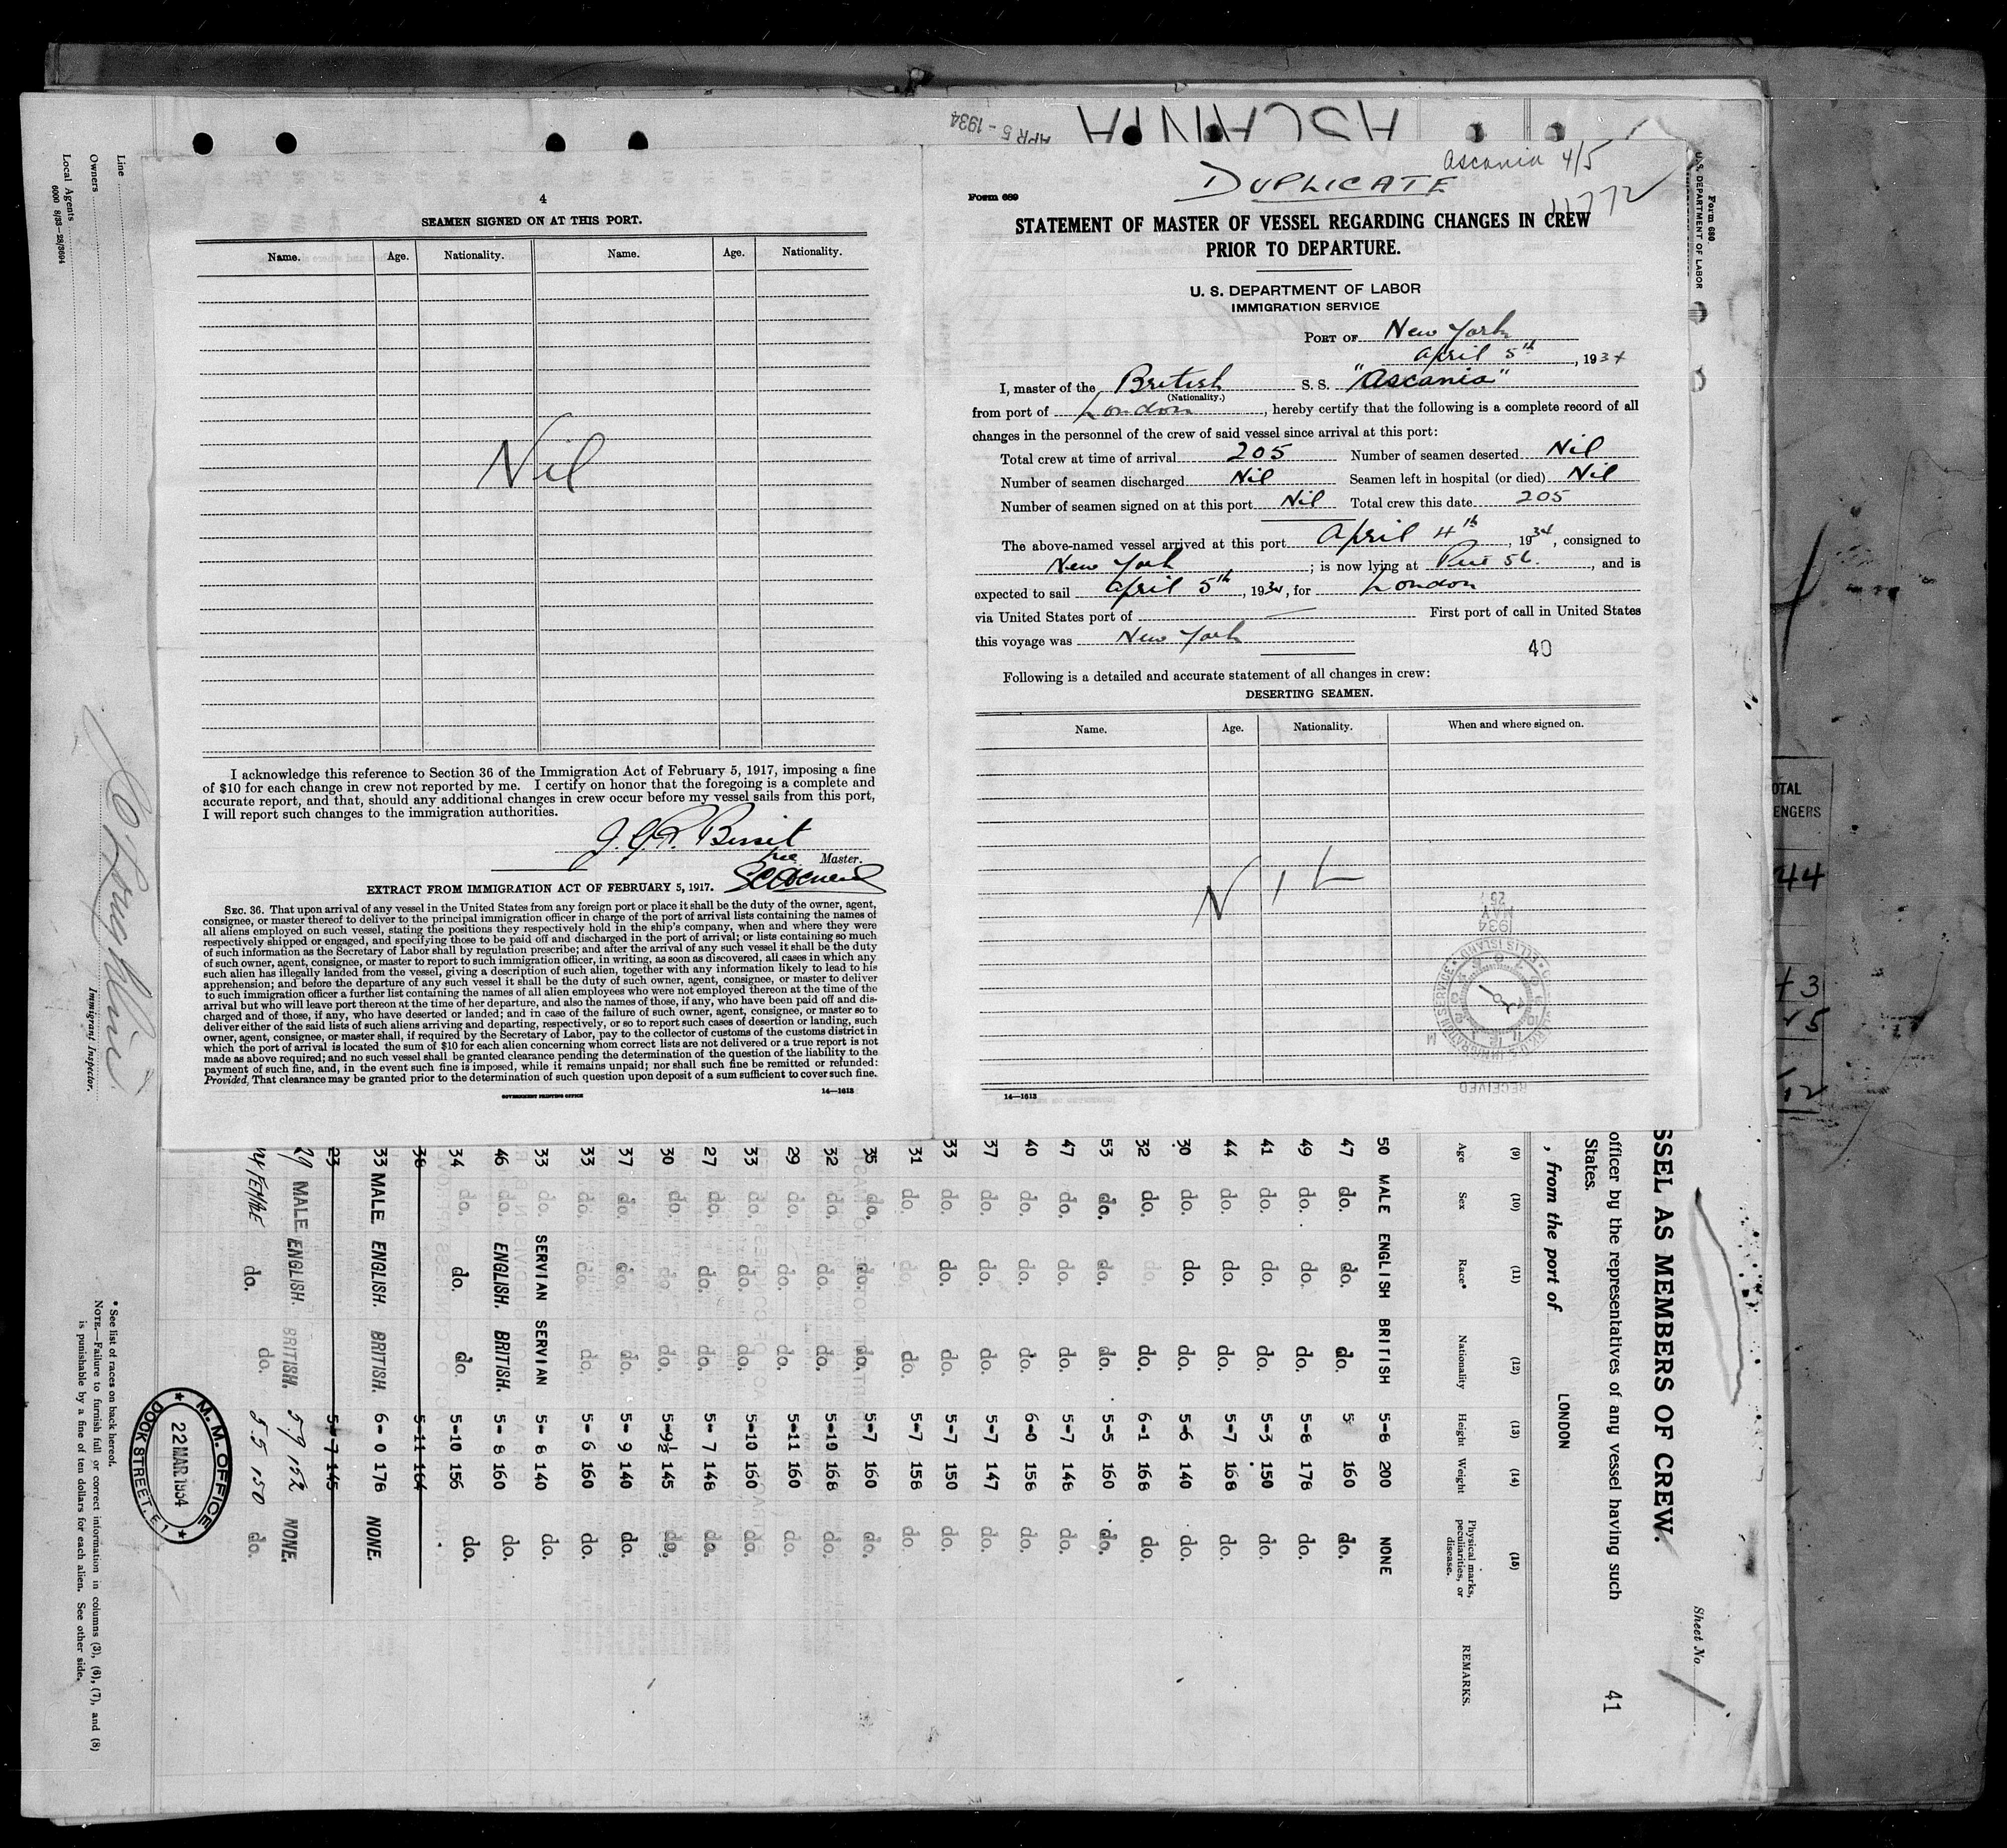 ASCANIA
APR 5 - 1934
Ascania 4/5
DUPLICATE
11772
4
SEAMEN SIGNED ON AT THIS PORT.
Name. Age. Nationality. Name. Age. Nationality.
Nil
I acknowledge this reference to Section 36 of the Immigration Act of February 5, 1917, imposing a fine
of $10 for each change in crew not reported by me. I certify on honor that the foregoing is a complete and
accurate report, and that, should any additional changes in crew occur before my vessel sails from this port,
I will report such changes to the immigration authorities.
Master.
EXTRACT FROM IMMIGRATION ACT OF FEBRUARY 5, 1917.
SEC. 36. That upon arrival of any vessel in the United States from any foreign port or place it shall be the duty of the owner, agent,
consignee, or master thereof to deliver to the principal immigration officer in charge of the port of arrival lists containing the names of
all aliens employed on such vessel, stating the positions they respectively hold in the ship's company, when and where they were
respectively shipped or engaged, and specifying those to be paid off and discharged in the port of arrival; or lists containing so much
of such information as the Secretary of Labor shall by regulation prescribe; and after the arrival of any such vessel it shall be the duty
of such owner, agent, consignee, or master to report to such immigration officer, in writing, as soon as discovered, all cases in which any
such alien has illegally landed from the vessel, giving a description of such alien, together with any information likely to lead to his
apprehension; and before the departure of any such vessel it shall be the duty of such owner, agent, consignee, or master to deliver
to such immigration officer a further list containing the names of all alien employees who were not employed thereon at the time of the
arrival but who will leave port thereon at the time of her departure, and also the names of those, if any, who have been paid off and dis-
charged and of those, if any, who have deserted or landed; and in case of the failure of such owner, agent, consignee, or master so to
deliver either of the said lists of such aliens arriving and departing, respectively, or so to report such cases of desertion or landing, such
owner, agent, consignee, or master shall, if required by the Secretary of Labor, pay to the collector of customs of the customs district in
which the port of arrival is located the sum of $10 for each alien concerning whom correct lists are not delivered or a true report is not
made as above required; and no such vessel shall be granted clearance pending the determination of the question of the liability to the
payment of such fine, and, in the event such fine is imposed, while it remains unpaid; nor shall such fine be remitted or refunded:
Provided, That clearance may be granted prior to the determination of such question upon deposit of a sum sufficient to cover such fine.
GOVERNMENT PRINTING OFFICE 14—1613
Form 689
STATEMENT OF MASTER OF VESSEL REGARDING CHANGES IN CREW
PRIOR TO DEPARTURE.
U. S. DEPARTMENT OF LABOR
IMMIGRATION SERVICE
PORT OF New York
April 5th, 1934
I, master of the British S. S. "Ascania"
(Nationality.)
from port of London, hereby certify that the following is a complete record of all
changes in the personnel of the crew of said vessel since arrival at this port:
Total crew at time of arrival 205 Number of seamen deserted Nil
Number of seamen discharged Nil Seamen left in hospital (or died) Nil
Number of seamen signed on at this port Nil Total crew this date 205
The above-named vessel arrived at this port April 4th, 1934, consigned to
New York; is now lying at Pier 56., and is
expected to sail April 5th, 1934, for London
via United States port of — First port of call in United States
this voyage was New York
40
Following is a detailed and accurate statement of all changes in crew:
DESERTING SEAMEN.
Name. Age. Nationality. When and where signed on.
NIL
RECEIVED
1934
MAY
25
14—1613
Form 680
U. S. DEPARTMENT OF LABOR
Sheet No.
SSEL AS MEMBERS OF CREW.
officer by the representatives of any vessel having such
States.
41
, from the port of LONDON
(9) (10) (11) (12) (13) (14) (15)
Age Sex Race* Nationality Height Weight Physical marks, peculiarities, or disease. REMARKS.
50 MALE ENGLISH BRITISH 5-8 200 NONE
47 do. do. do. 5 160 do.
49 do. do. do. 5-8 178 do.
41 do. do. do. 5-3 150 do.
44 do. do. do. 5-7 168 do.
30 do. do. do. 5-6 140 do.
32 do. do. do. 6-1 168 do.
53 do. do. do. 5-5 160 do.
47 do. do. do. 5-7 148 do.
40 do. do. do. 6-0 158 do.
37 do. do. do. 5-7 147 do.
33 do. do. do. 5-7 150 do.
31 do. do. do. 5-7 158 do.
35 do. do. do. 5-7 160 do.
32 do. do. do. 5-10 168 do.
29 do. do. do. 5-11 160 do.
33 do. do. do. 5-10 160 do.
27 do. do. do. 5-7 148 do.
30 do. do. do. 5-9½ 145 do.
37 do. do. do. 5-9 140 do.
33 do. do. do. 5-6 160 do.
33 do. SERVIAN SERVIAN 5-8 140 do.
46 do. ENGLISH. BRITISH. 5-8 160 do.
34 do. do. do. 5-10 156 do.
5-11 164
33 MALE ENGLISH. BRITISH. 6-0 176 NONE.
23 5-7 145
29 MALE ENGLISH. BRITISH. 5 9 152 NONE.
FEMALE do. do. 5.5 150 do.
* See list of races on back hereof.
NOTE.—Failure to furnish full or correct information in columns (3), (6), (7), and (8)
is punishable by a fine of ten dollars for each alien. See other side.
M. M. OFFICE
22 MAR 1934
DOCK STREET. E 1
Line
Owners
Local Agents
6000 8/33—28/3694
Immigrant Inspector.
OTAL
ENGERS
44